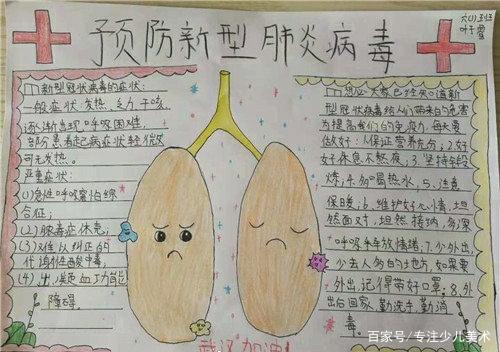 预防新型肺炎病毒
六(1)班
叶子雪
新型冠状病毒的症状:
一般症状:发热、乏力、干咳,
逐渐出现呼吸困难,
部防患者起病症状轻微,
可无发热。
严重症状:
(1)急性呼吸窘怕综
合征;
(2)脓毒症休克;
(3)难从纠正的
代谢性酸中毒,
(4)出凝血功能
障碍
新
型冠状病毒给人们带来的危害
为提高我们的免疫力,每天要
做好:1.保证营养充分;2.好
好休息不熬夜、3.坚持年段
炼;4.多喝热水,5.注意
保暖;6.维护好心情,坦
然面对,坦然接纳,多深
呼吸来年放情绪;7.少外出,
少去人多的土地方,如果要
外出,记得带好口罩。8.外
出后回家,勤洗手,勤消
毒。
武汉加油!
百家号/专注少儿美术